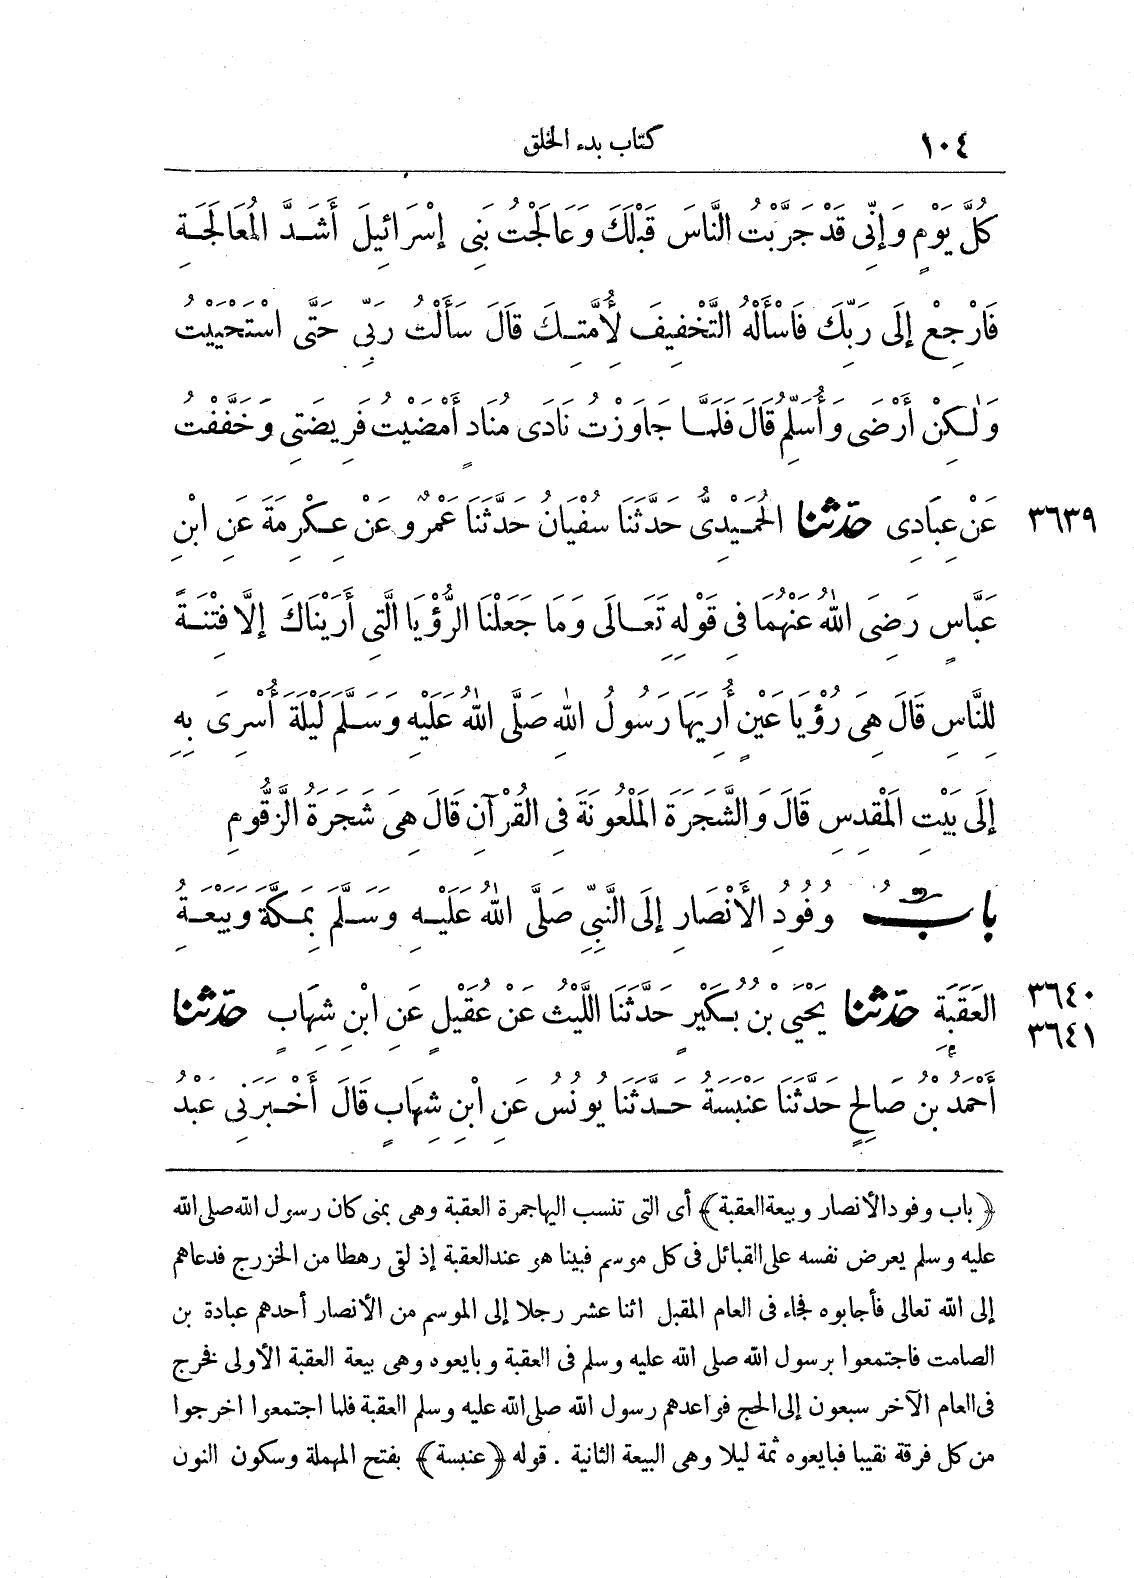 ١٠٤ كتاب بدء الخلق
كُلَّ يَوْمٍ وَإِنِّى قَدْ جَرَّبْتُ النَّاسَ قَبْلَكَ وَعَالَجْتُ بَنِى إِسْرَائِيلَ أَشَدَّ الْمُعَالَجَةِ
فَارْجِعْ إِلَى رَبِّكَ فَاسْأَلْهُ التَّخْفِيفَ لِأُمَّتِكَ قَالَ سَأَلْتُ رَبِّى حَتَّى اسْتَحْيَيْتُ
وَلٰكِنْ أَرْضَى وَأُسَلِّمُ قَالَ فَلَمَّا جَاوَزْتُ نَادَى مُنَادٍ أَمْضَيْتُ فَرِيضَتِى وَخَفَّفْتُ
عَنْ عِبَادِى حَدَّثَنَا الْحُمَيْدِىُّ حَدَّثَنَا سُفْيَانُ حَدَّثَنَا عَمْرٌو عَنْ عِكْرِمَةَ عَنِ ابْنِ ٣٦٣٩
عَبَّاسٍ رَضِىَ اللهُ عَنْهُمَا فِى قَوْلِهِ تَعَالَى وَمَا جَعَلْنَا الرُّؤْيَا الَّتِى أَرَيْنَاكَ إِلَّا فِتْنَةً
لِلنَّاسِ قَالَ هِىَ رُؤْيَا عَيْنٍ أُرِيَهَا رَسُولُ اللهِ صَلَّى اللهُ عَلَيْهِ وَسَلَّمَ لَيْلَةَ أُسْرِىَ بِهِ
إِلَى بَيْتِ الْمَقْدِسِ قَالَ وَالشَّجَرَةَ الْمَلْعُونَةَ فِى الْقُرْآنِ قَالَ هِىَ شَجَرَةُ الزَّقُّومِ
بَابُ وُفُودُ الْأَنْصَارِ إِلَى النَّبِىِّ صَلَّى اللهُ عَلَيْهِ وَسَلَّمَ بِمَكَّةَ وَبَيْعَةُ
الْعَقَبَةِ حَدَّثَنَا يَحْيَى بْنُ بُكَيْرٍ حَدَّثَنَا اللَّيْثُ عَنْ عُقَيْلٍ عَنِ ابْنِ شِهَابٍ حَدَّثَنَا ٣٦٤٠ ٣٦٤١
أَحْمَدُ بْنُ صَالِحٍ حَدَّثَنَا عَنْبَسَةُ حَدَّثَنَا يُونُسُ عَنِ ابْنِ شِهَابٍ قَالَ أَخْبَرَنِى عَبْدُ
﴿باب وفود الأنصار وبيعة العقبة﴾ أى التى تنسب اليها جمرة العقبة وهى بمنى كان رسول الله صلى الله
عليه وسلم يعرض نفسه على القبائل فى كل موسم فبينا هو عند العقبة إذ لقى رهطا من الخزرج فدعاهم
إلى الله تعالى فأجابوه فجاء فى العام المقبل اثنا عشر رجلا إلى الموسم من الأنصار أحدهم عبادة بن
الصامت فاجتمعوا برسول الله صلى الله عليه وسلم فى العقبة وبايعوه وهى بيعة العقبة الأولى فخرج
فى العام الآخر سبعون إلى الحج فواعدهم رسول الله صلى الله عليه وسلم العقبة فلما اجتمعوا اخرجوا
من كل فرقة نقيبا فبايعوه ثمة ليلا وهى البيعة الثانية . قوله ﴿عنبسة﴾ بفتح المهملة وسكون النون